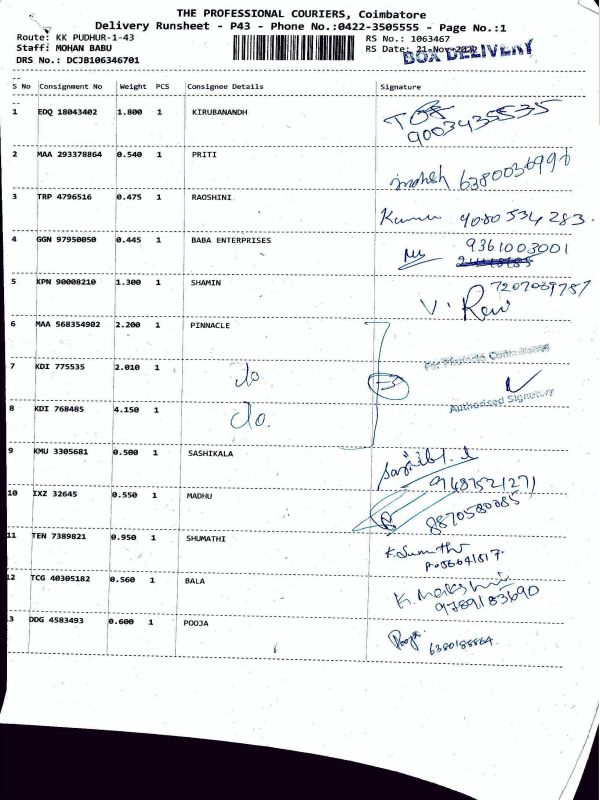 THE PROFESSIONAL COURIERS, Coimbatore
Delivery Runsheet - P43 - Phone No.:0422-3505555 - Page No.:1
Route: KK PUDHUR-1-43 RS No.: 1063467
Staff: MOHAN BABU RS Date: 21-Nov-2022
DRS No.: DCJB106346701 BOX DELIVERY
S No Consignment No Weight PCS Consignee Details Signature
1 EDQ 18043402 1.800 1 KIRUBANANDH
9003435535
2 MAA 293378864 0.540 1 PRITI
3 TRP 4796516 0.475 1 RAOSHINI
9080 534 283.
4 GGN 97950050 0.445 1 BABA ENTERPRISES 9361003001
5 KPN 90008210 1.300 1 SHAMIN
V. Ravi
6 MAA 568354902 2.200 1 PINNACLE
7 KDI 775535 2.010 1 do
8 KDI 768485 4.150 1 do. Authorised Signatory
9 KMU 3305681 0.500 1 SASHIKALA
9487521271
10 IXZ 32645 0.550 1 MADHU
8870580085
11 TEN 7389821 0.950 1 SHUMATHI K.Sumathi
12 TCG 40305182 0.560 1 BALA
9789183690
3 DDG 4583493 0.600 1 POOJA Pooja
6380188864